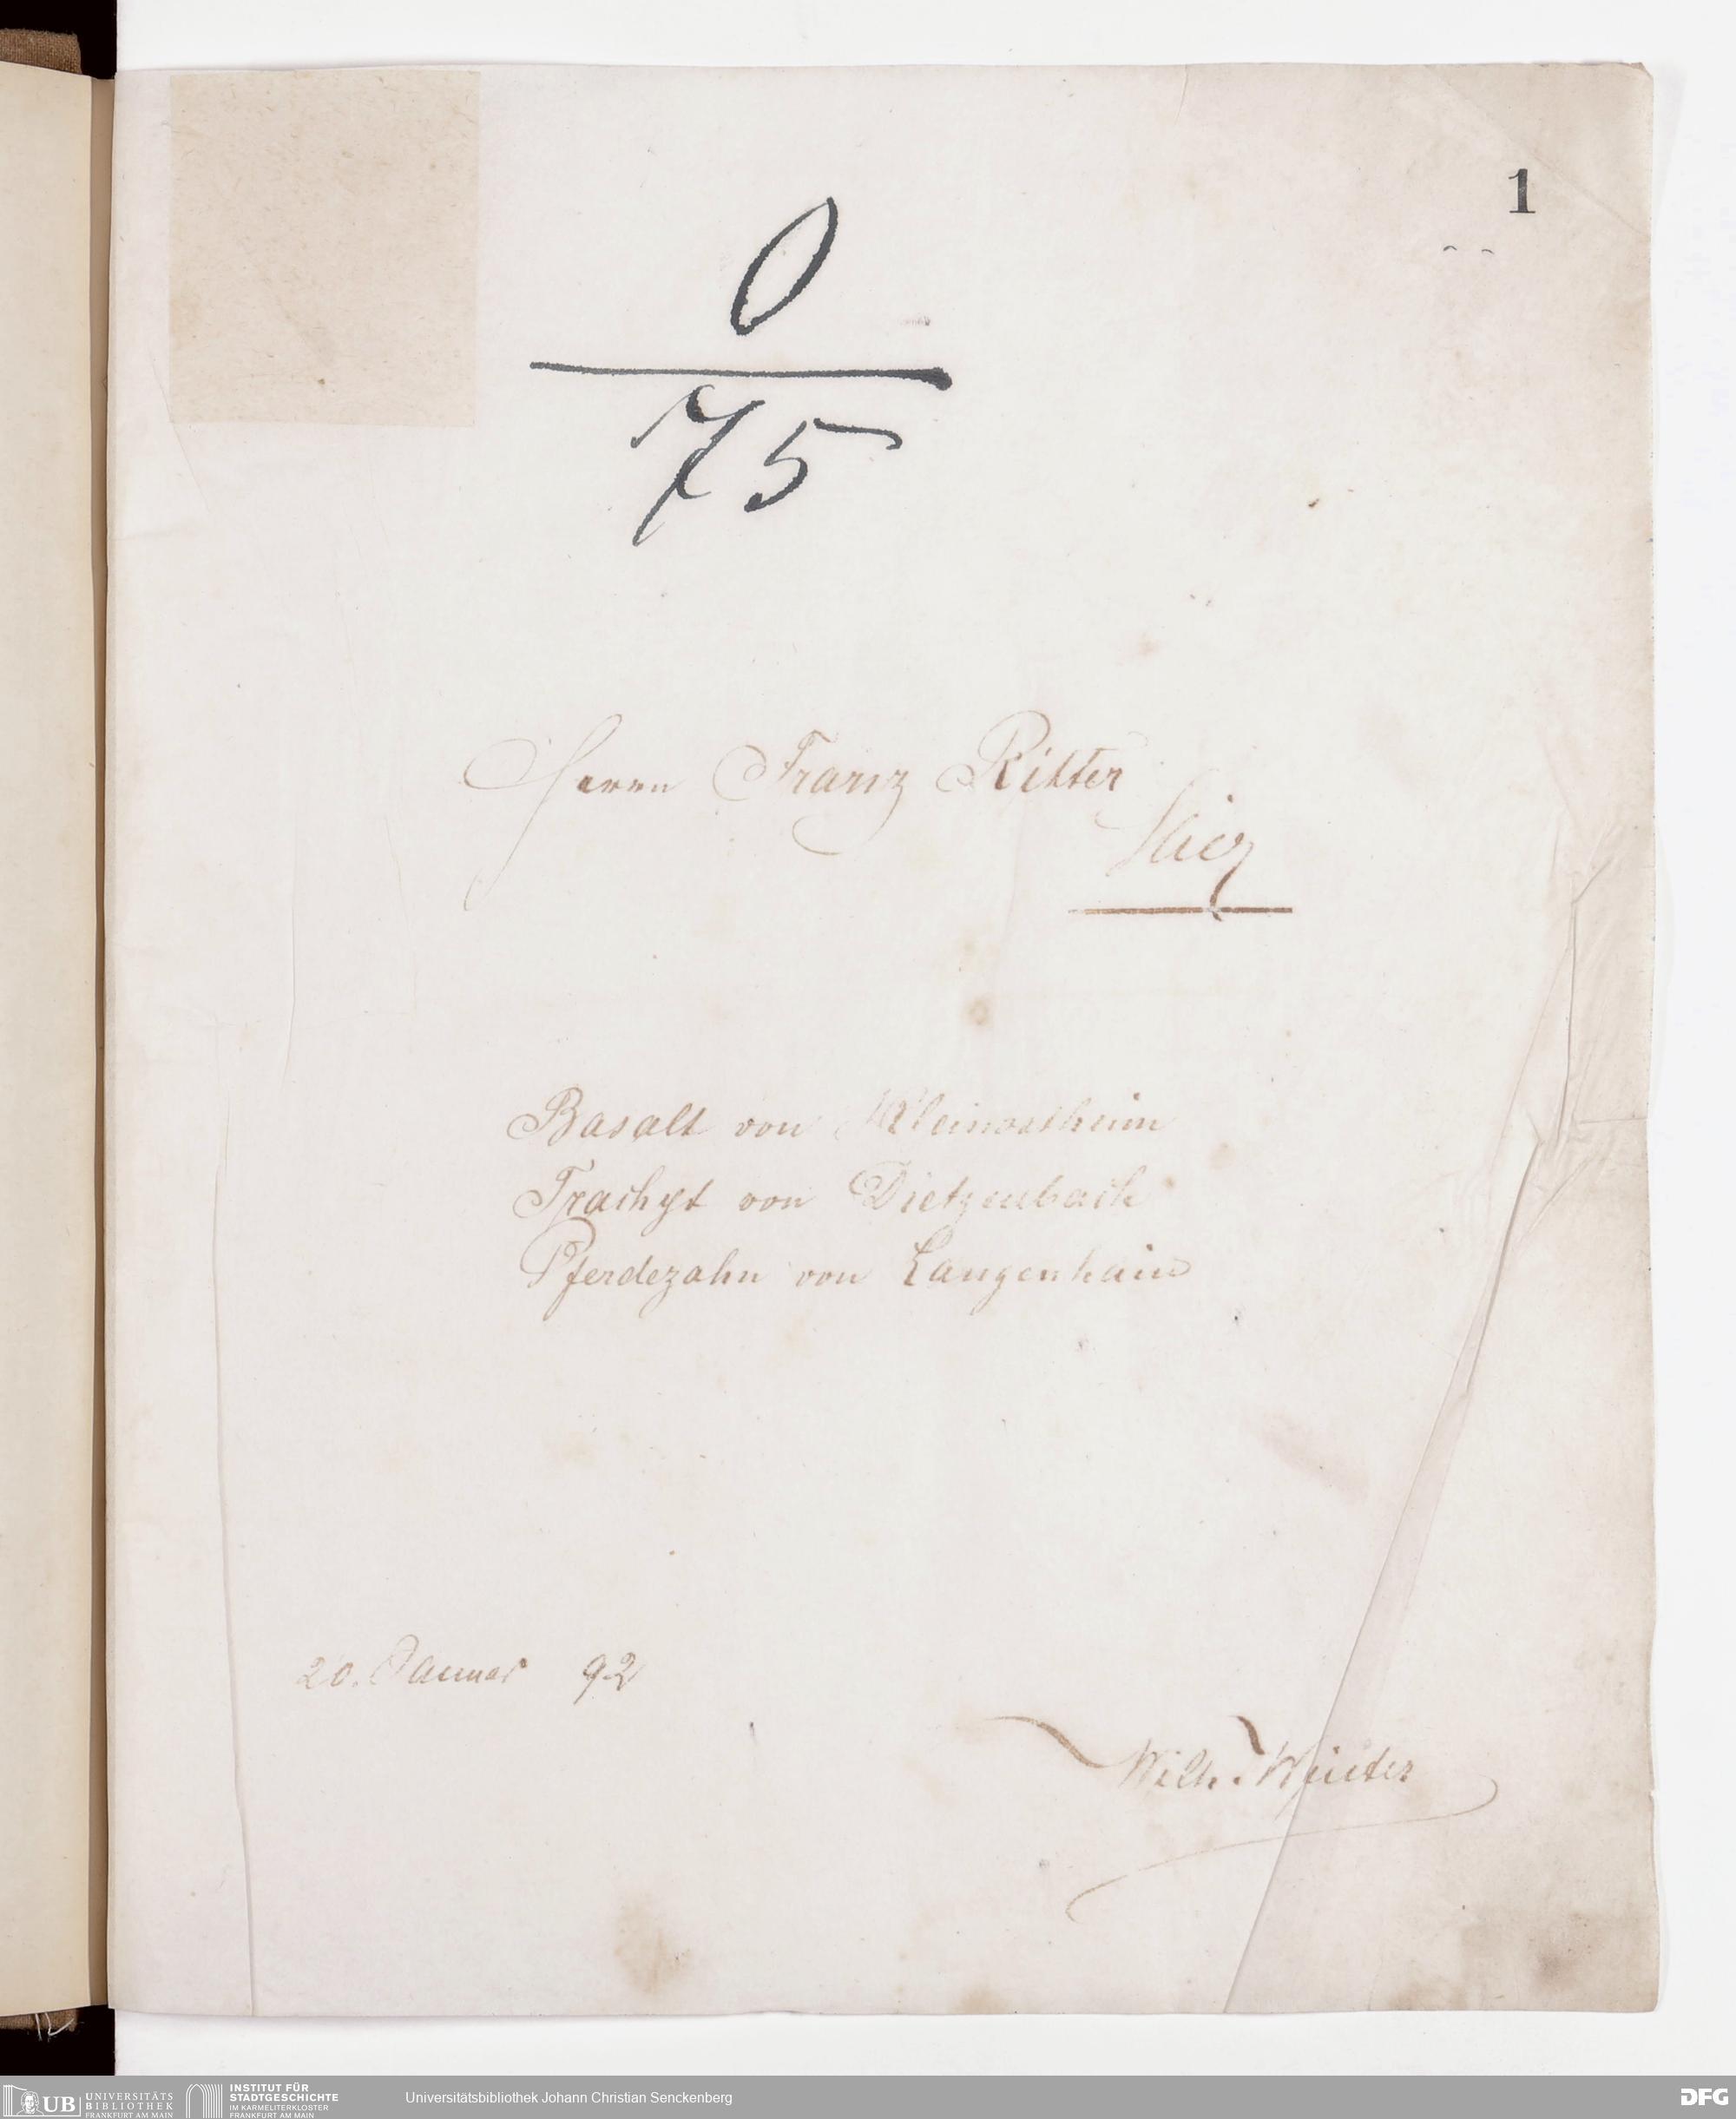 1
0
75
Herrn Franz Ritter
Hier
Basalt von Kleinostheim
Trachyt von Dietzenbach
Pferdezahn von Langenhain
20. Januar 92
Wilh.
UB UNIVERSITÄTS
BIBLIOTHEK
FRANKFURT AM MAIN
INSTITUT FÜR
STADTGESCHICHTE
IM KARMELITERKLOSTER
FRANKFURT AM MAIN
Universitätsbibliothek Johann Christian Senckenberg
DFG